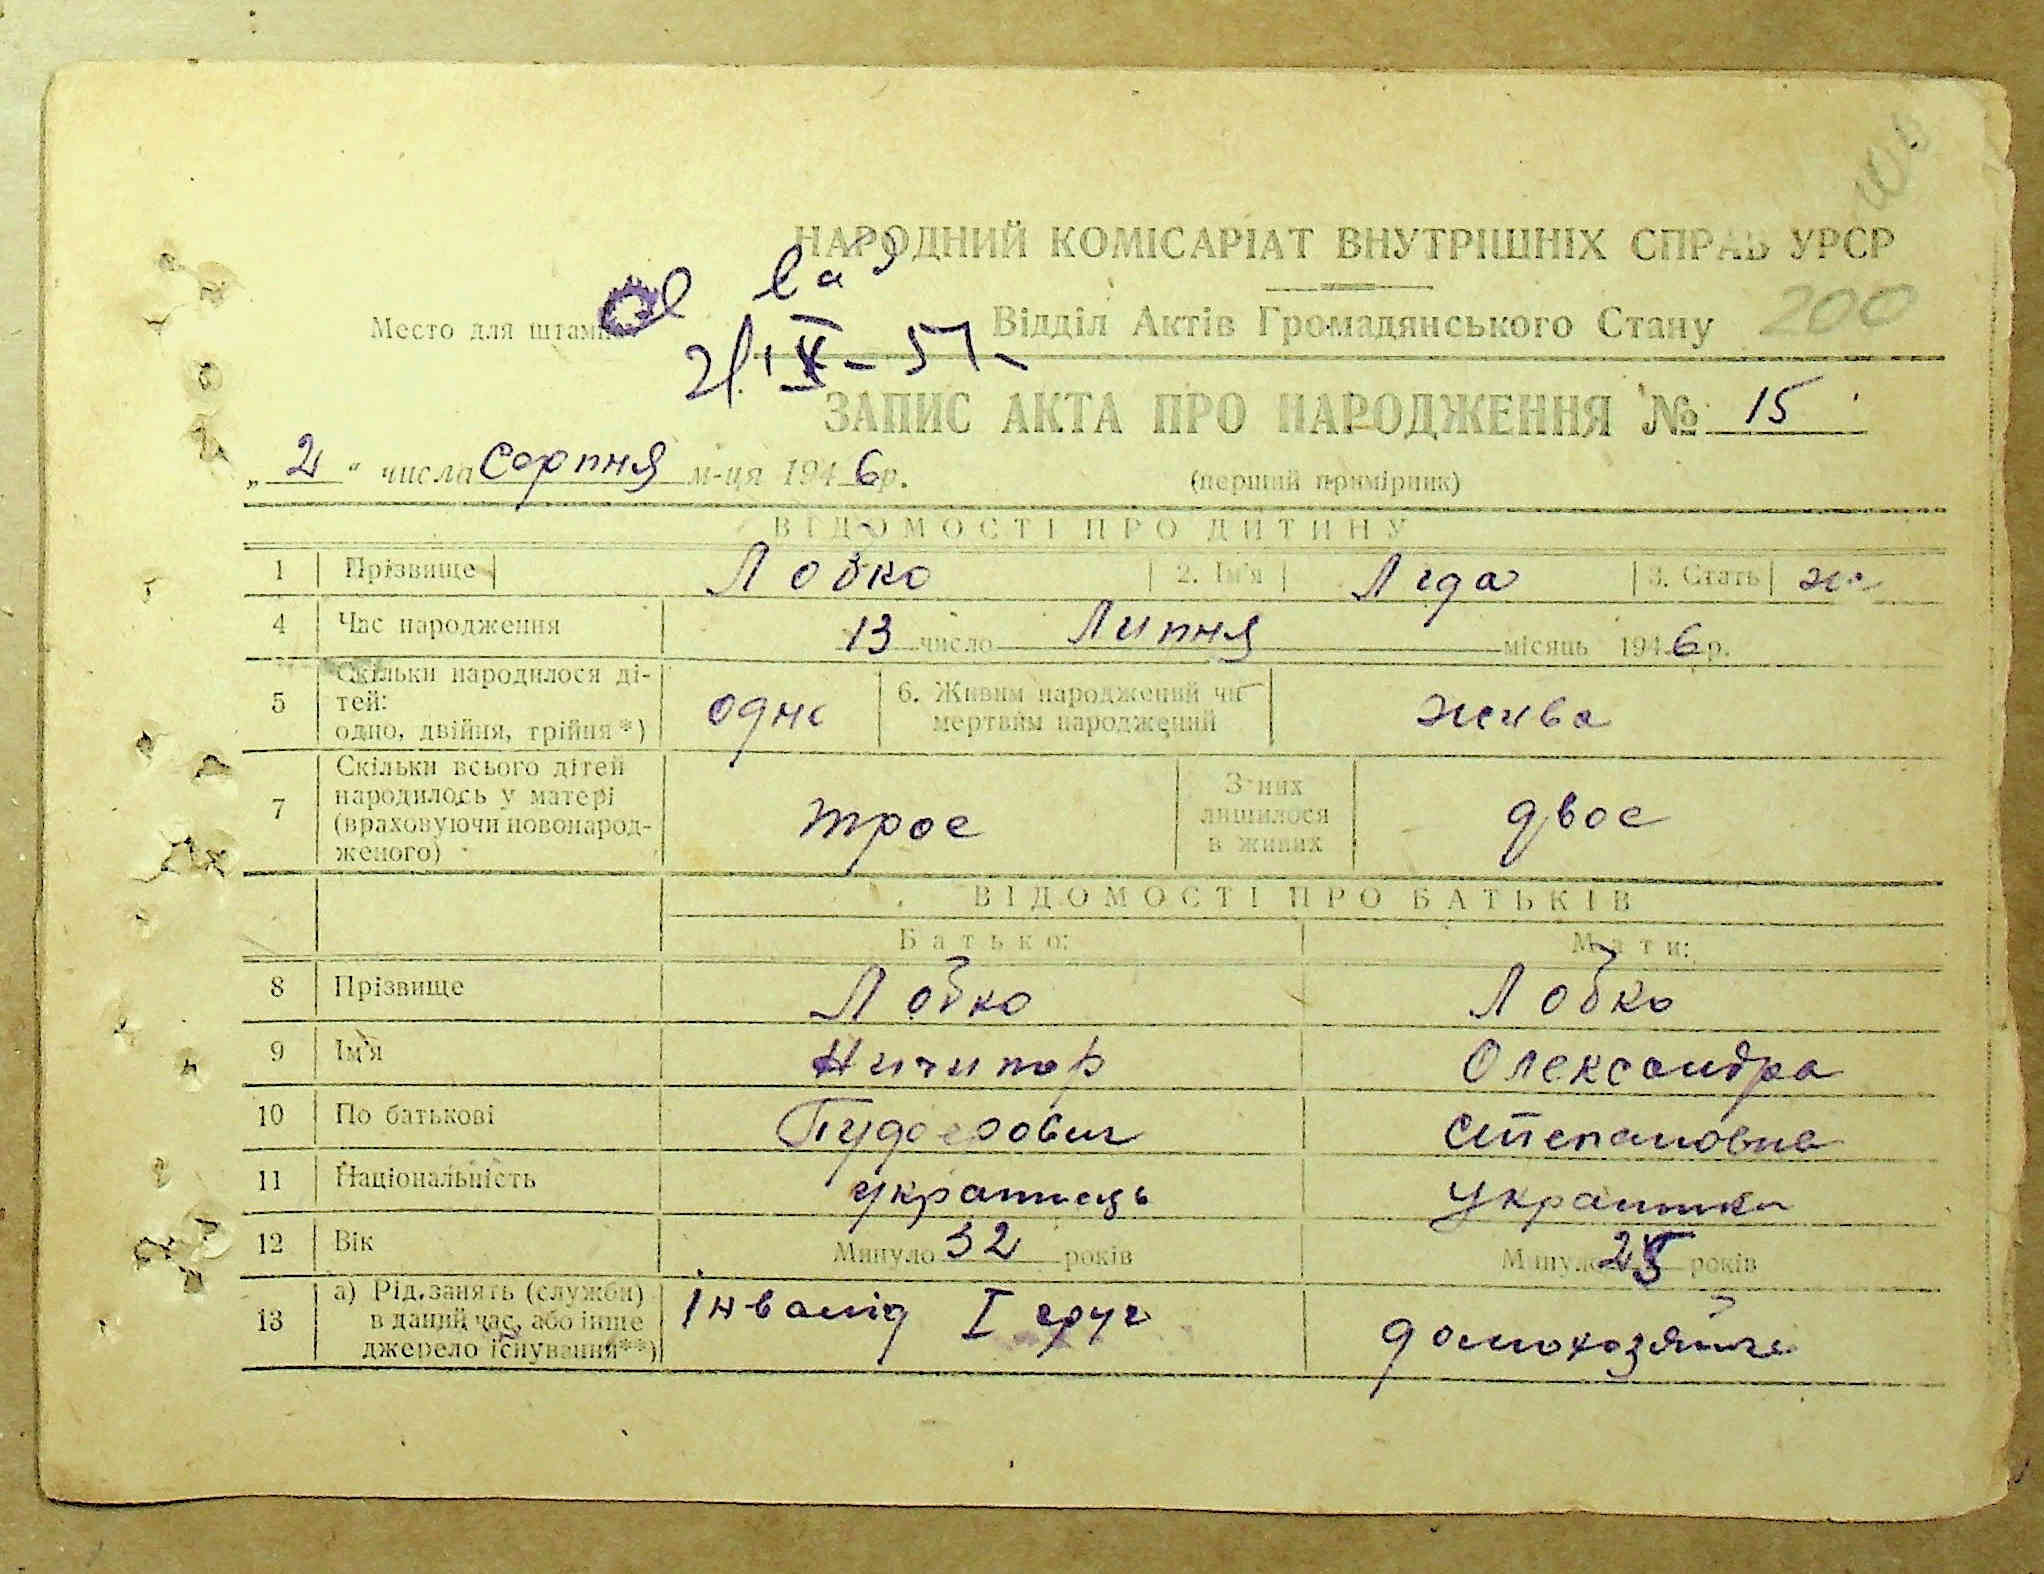 НАРОДНИЙ КОМІСАРІАТ ВНУТРІШНІХ СПРАВ УРСР
Место для штампа
Відділ Актів Громадянського Стану 200
21. IX - 51.
ЗАПИС АКТА ПРО НАРОДЖЕННЯ № 15
„2" числа Серпня м-ця 1946р.
(перший примірник)
ВІДОМОСТІ ПРО ДИТИНУ
1 Прізвище Лобко 2. Ім'я Ліда 3. Стать ж
4 Час народження 13 число Липня місяць 1946р.
5 Скільки народилося ді-
тей:
одно, двійня, трійня*) одне 6. Живим народжений чи
мертвим народжений жива
7 Скільки всього дітей
народилось у матері
(враховуючи новонарод-
женого) троє З них
лишилося
в живих двоє
ВІДОМОСТІ ПРО БАТЬКІВ
Батько: Мати:
8 Прізвище Лобко Лобко
9 Ім'я Ничипор Олександра
10 По батькові Степановна
11 Національність українець українка
12 Вік Минуло 32 років Минуло років
13 а) Рід занять (служби)
в даний час, або інше
джерело існування**) Інвалід І груп домохозяйка